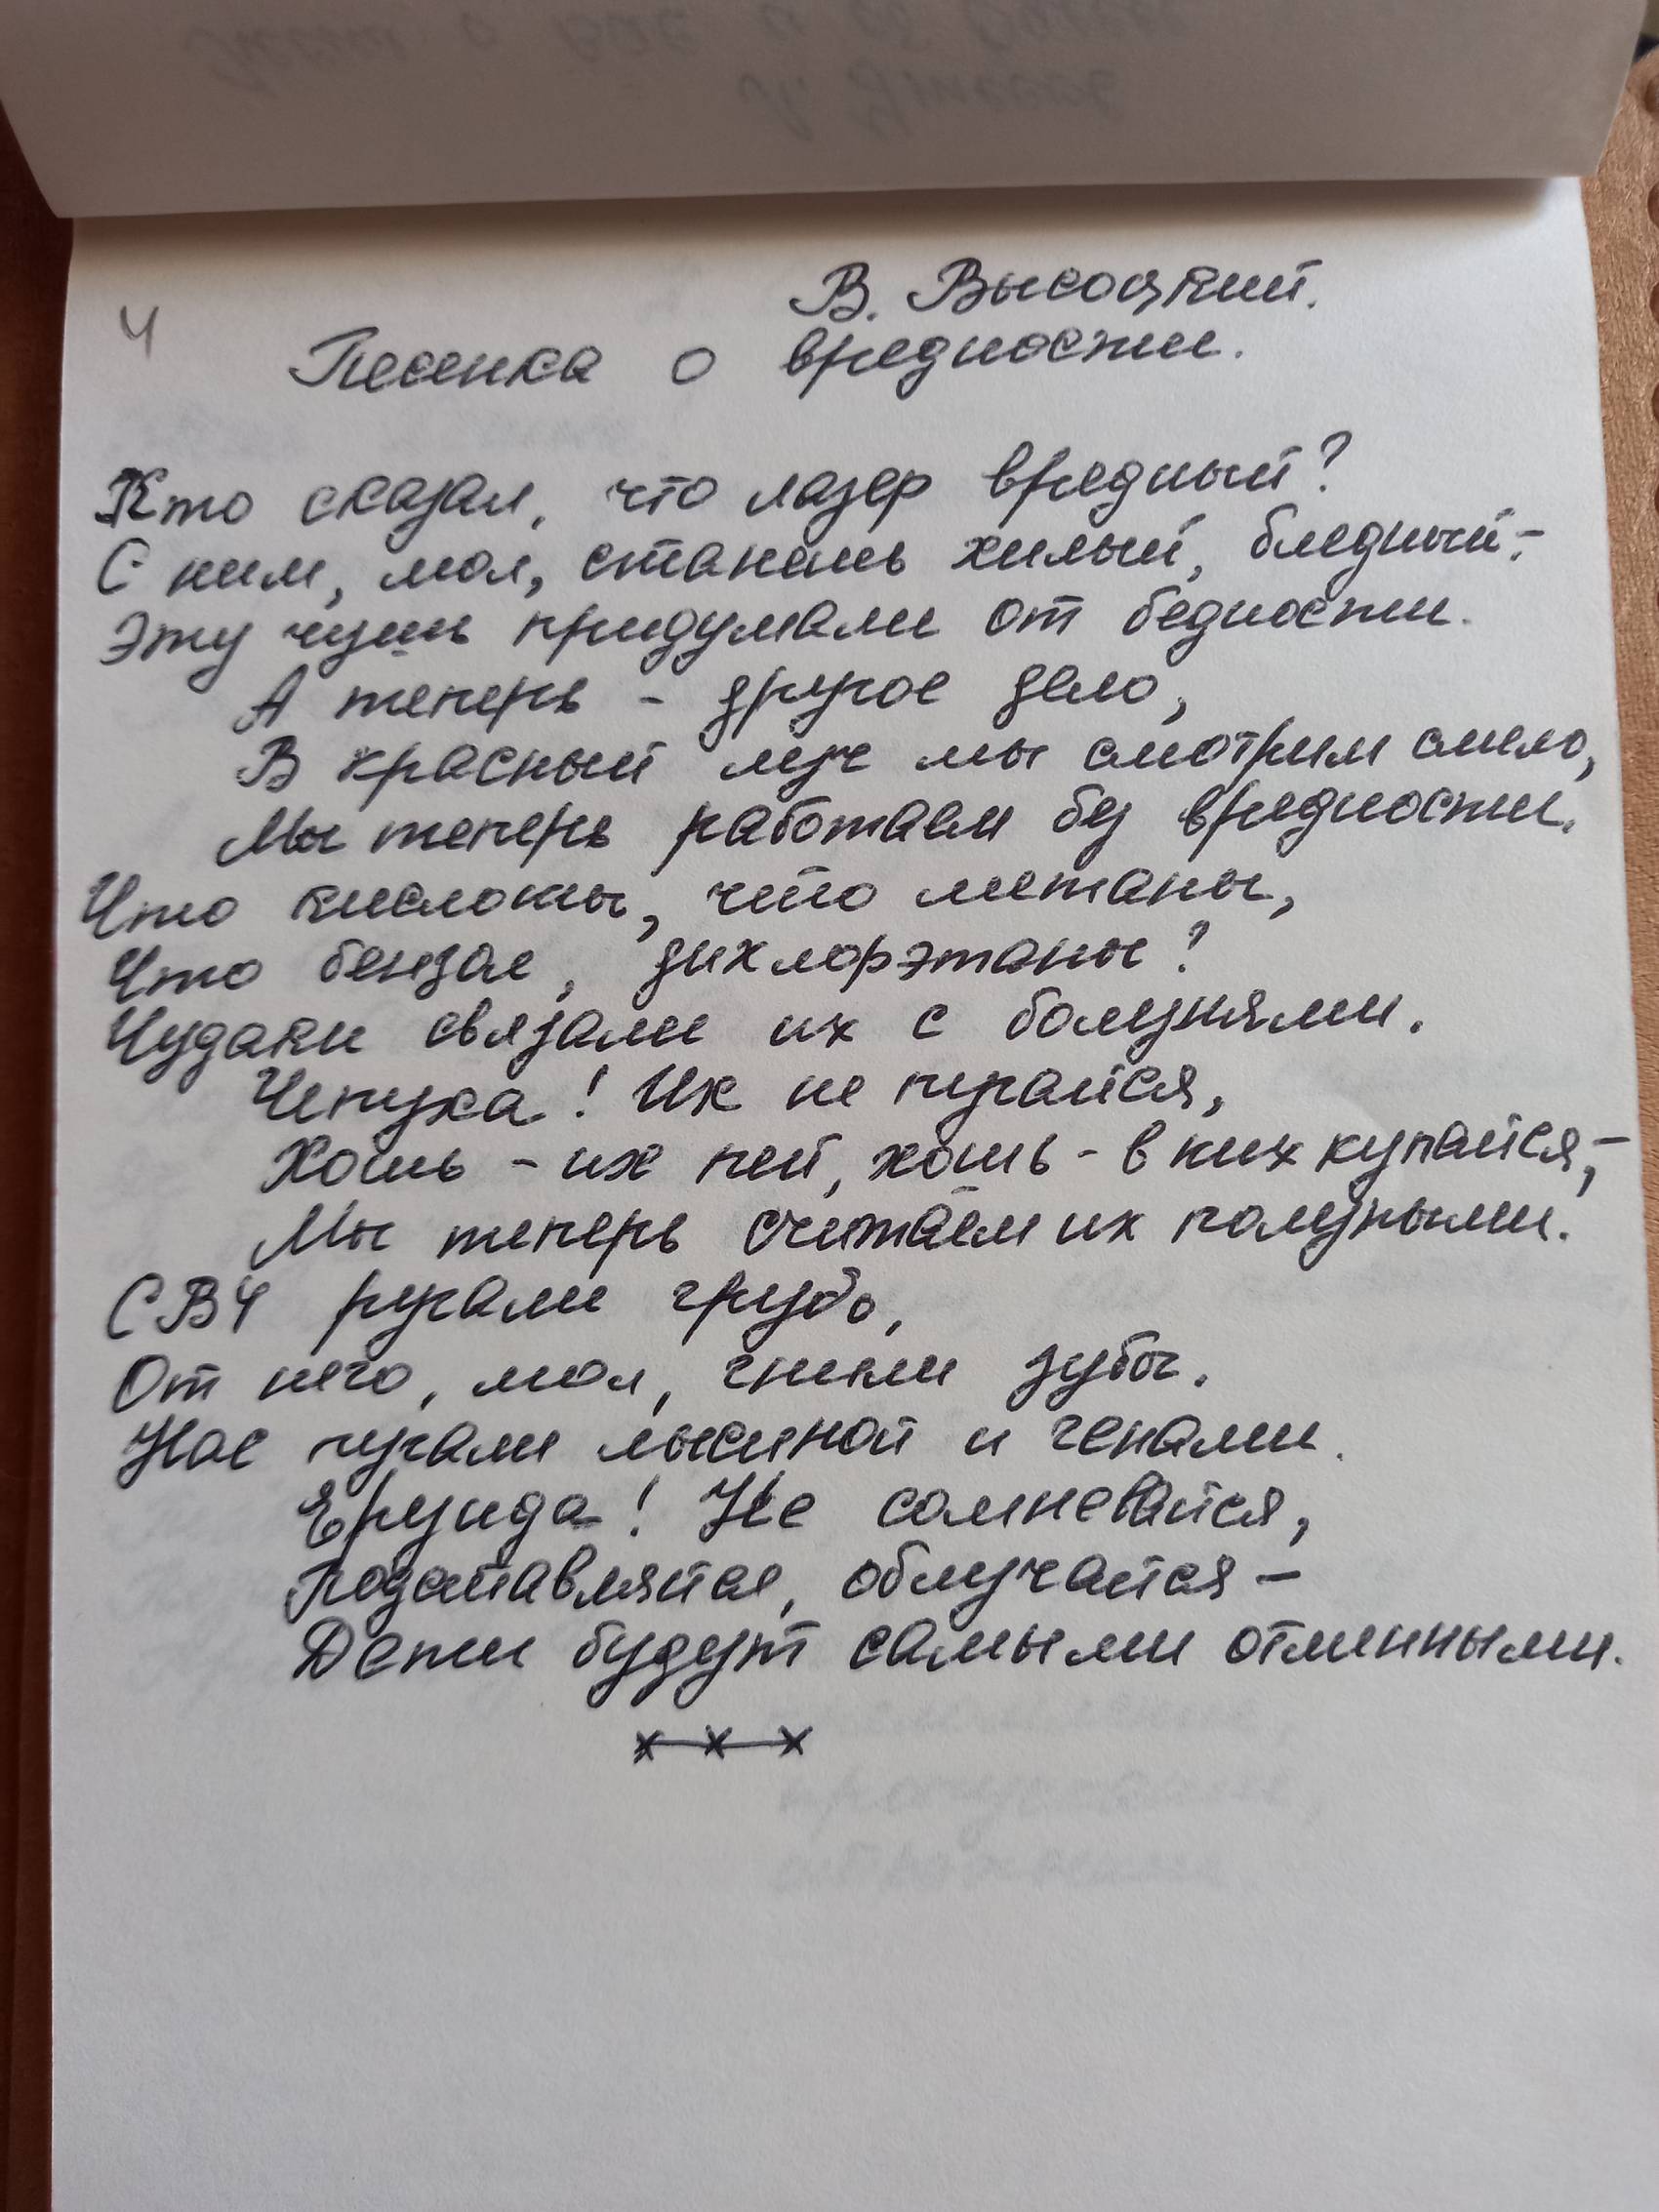 В. Высоцкий.
4
Песенка о вредности.
Кто сказал, что лазер вредный?
С ним, мол, станешь хилый, бледный, -
Эту чушь придумали от бедности.
А теперь - другое дело,
В красный луч мы смотрим смело,
Мы теперь работаем без вредности.
Что кислоты, что метаны,
Что бензол, дихлорэтаны?
Чудаки связали их с болезнями.
Чепуха! Их не пугайся,
Хошь - их пей, хошь - в них купайся, -
Мы теперь считаем их полезными.
СВЧ ругали грубо,
От него, мол, гнили зубы.
Нас пугали лысиной и генами.
Ерунда! Не сомневайся,
Подставляйся, облучайся -
Дети будут самыми отменными.